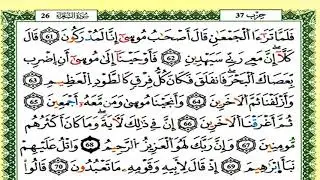 26 سُورَةُ الشُّعَرَاءِ حِزْب 37
فَلَمَّا تَرَٰٓءَا ٱلْجَمْعَٰنِ قَالَ أَصْحَٰبُ مُوسَىٰٓ إِنَّا لَمُدْرَكُونَ 61 قَالَ
كَلَّآ إِنَّ مَعِىَ رَبِّى سَيَهْدِينِ 62 فَأَوْحَيْنَآ إِلَىٰ مُوسَىٰٓ أَنِ ٱضْرِب
بِّعَصَاكَ ٱلْبَحْرَ فَٱنفَلَقَ فَكَانَ كُلُّ فِرْقٍ كَٱلطَّوْدِ ٱلْعَظِيمِ 63
وَأَزْلَفْنَا ثَمَّ ٱلْءَاخَرِينَ 64 وَأَنجَيْنَا مُوسَىٰ وَمَن مَّعَهُۥٓ أَجْمَعِينَ 65
ثُمَّ أَغْرَقْنَا ٱلْءَاخَرِينَ 66 إِنَّ فِى ذَٰلِكَ لَءَايَةً وَمَا كَانَ أَكْثَرُهُم
مُّؤْمِنِينَ 67 وَإِنَّ رَبَّكَ لَهُوَ ٱلْعَزِيزُ ٱلرَّحِيمُ 68 وَٱتْلُ عَلَيْهِمْ
نَبَأَ إِبْرَٰهِيمَ 69 إِذْ قَالَ لِأَبِيهِ وَقَوْمِهِۦ مَا تَعْبُدُونَ 70 قَالُوا۟